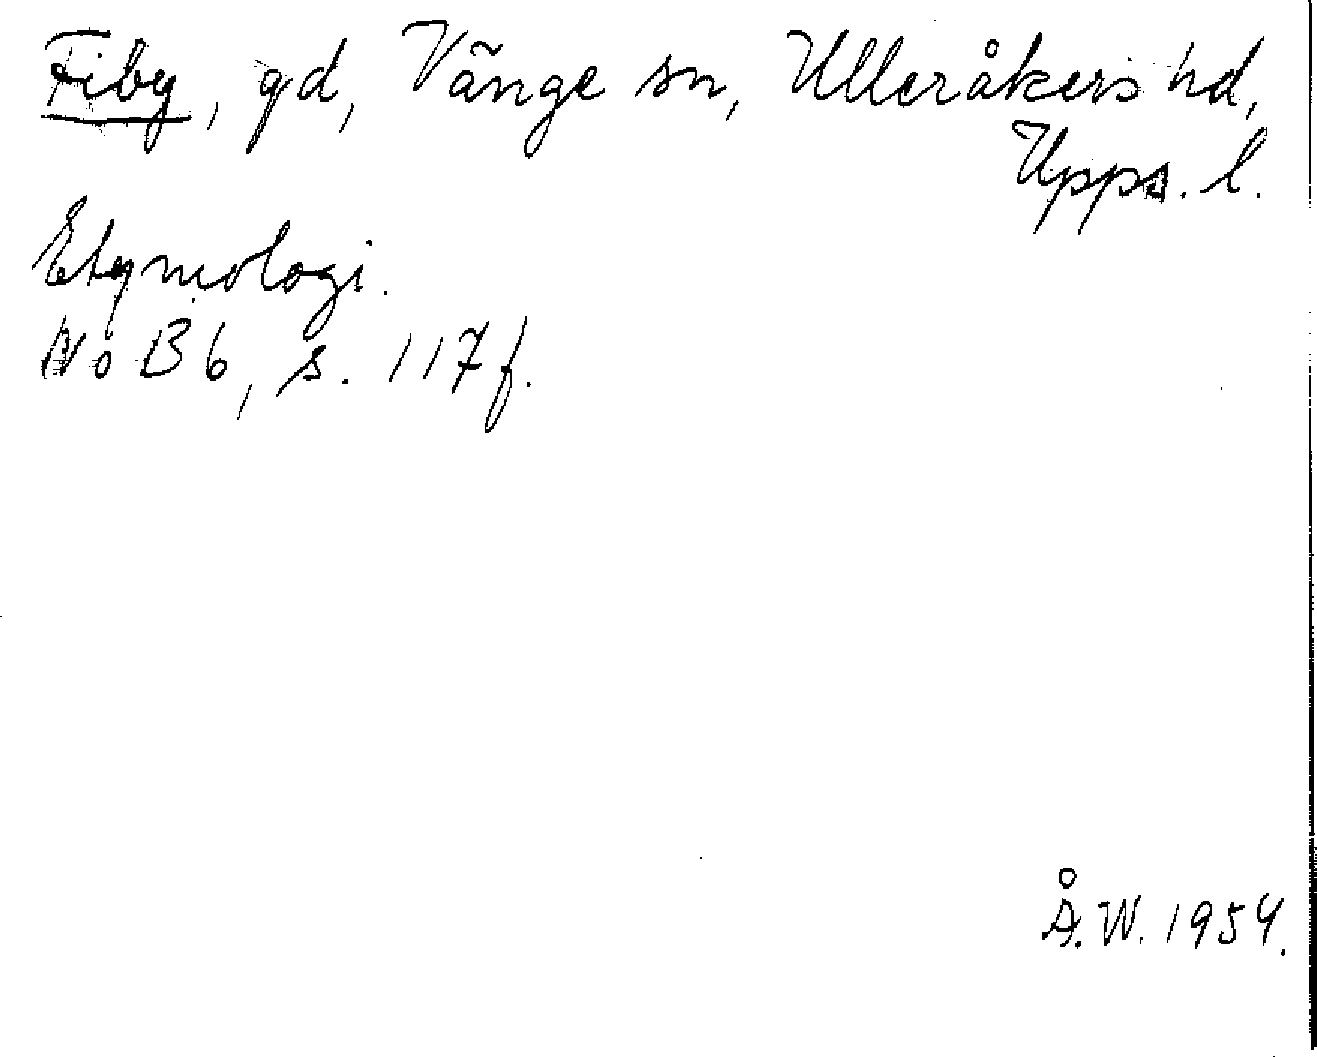 Fiby, gd, Vänge sn, Ulleråkers hd,
Upps. l.
Etymologi.
NoB 6, s. 117 f.
Å. W. 1954.